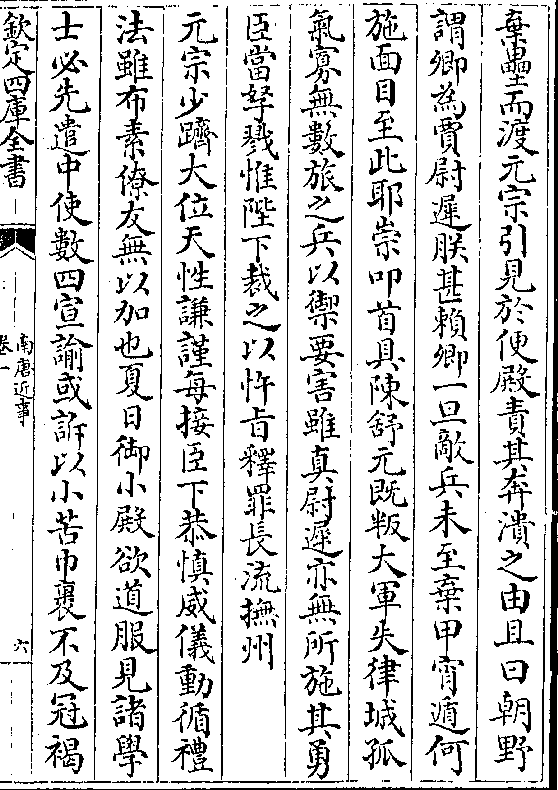 棄壘而渡元宗引見於便殿責其奔潰之由且曰朝野
謂卿為賈尉遲朕甚賴卿一旦敵兵未至棄甲宵遁何
施面目至此耶崇叩首具陳舒元既叛大軍失律城孤
氣寡無數旅之兵以禦要害雖真尉遲亦無所施其勇
臣當孥戮惟陛下裁之以忤旨釋罪長流撫州
元宗少躋大位天性謙謹每接臣下恭慎威儀動循禮
法雖布素僚友無以加也夏日御小殿欲道服見諸學
士必先遣中使數四宣諭或訴以小苦巾裹不及冠褐
欽定四庫全書
南唐近事
卷一
六